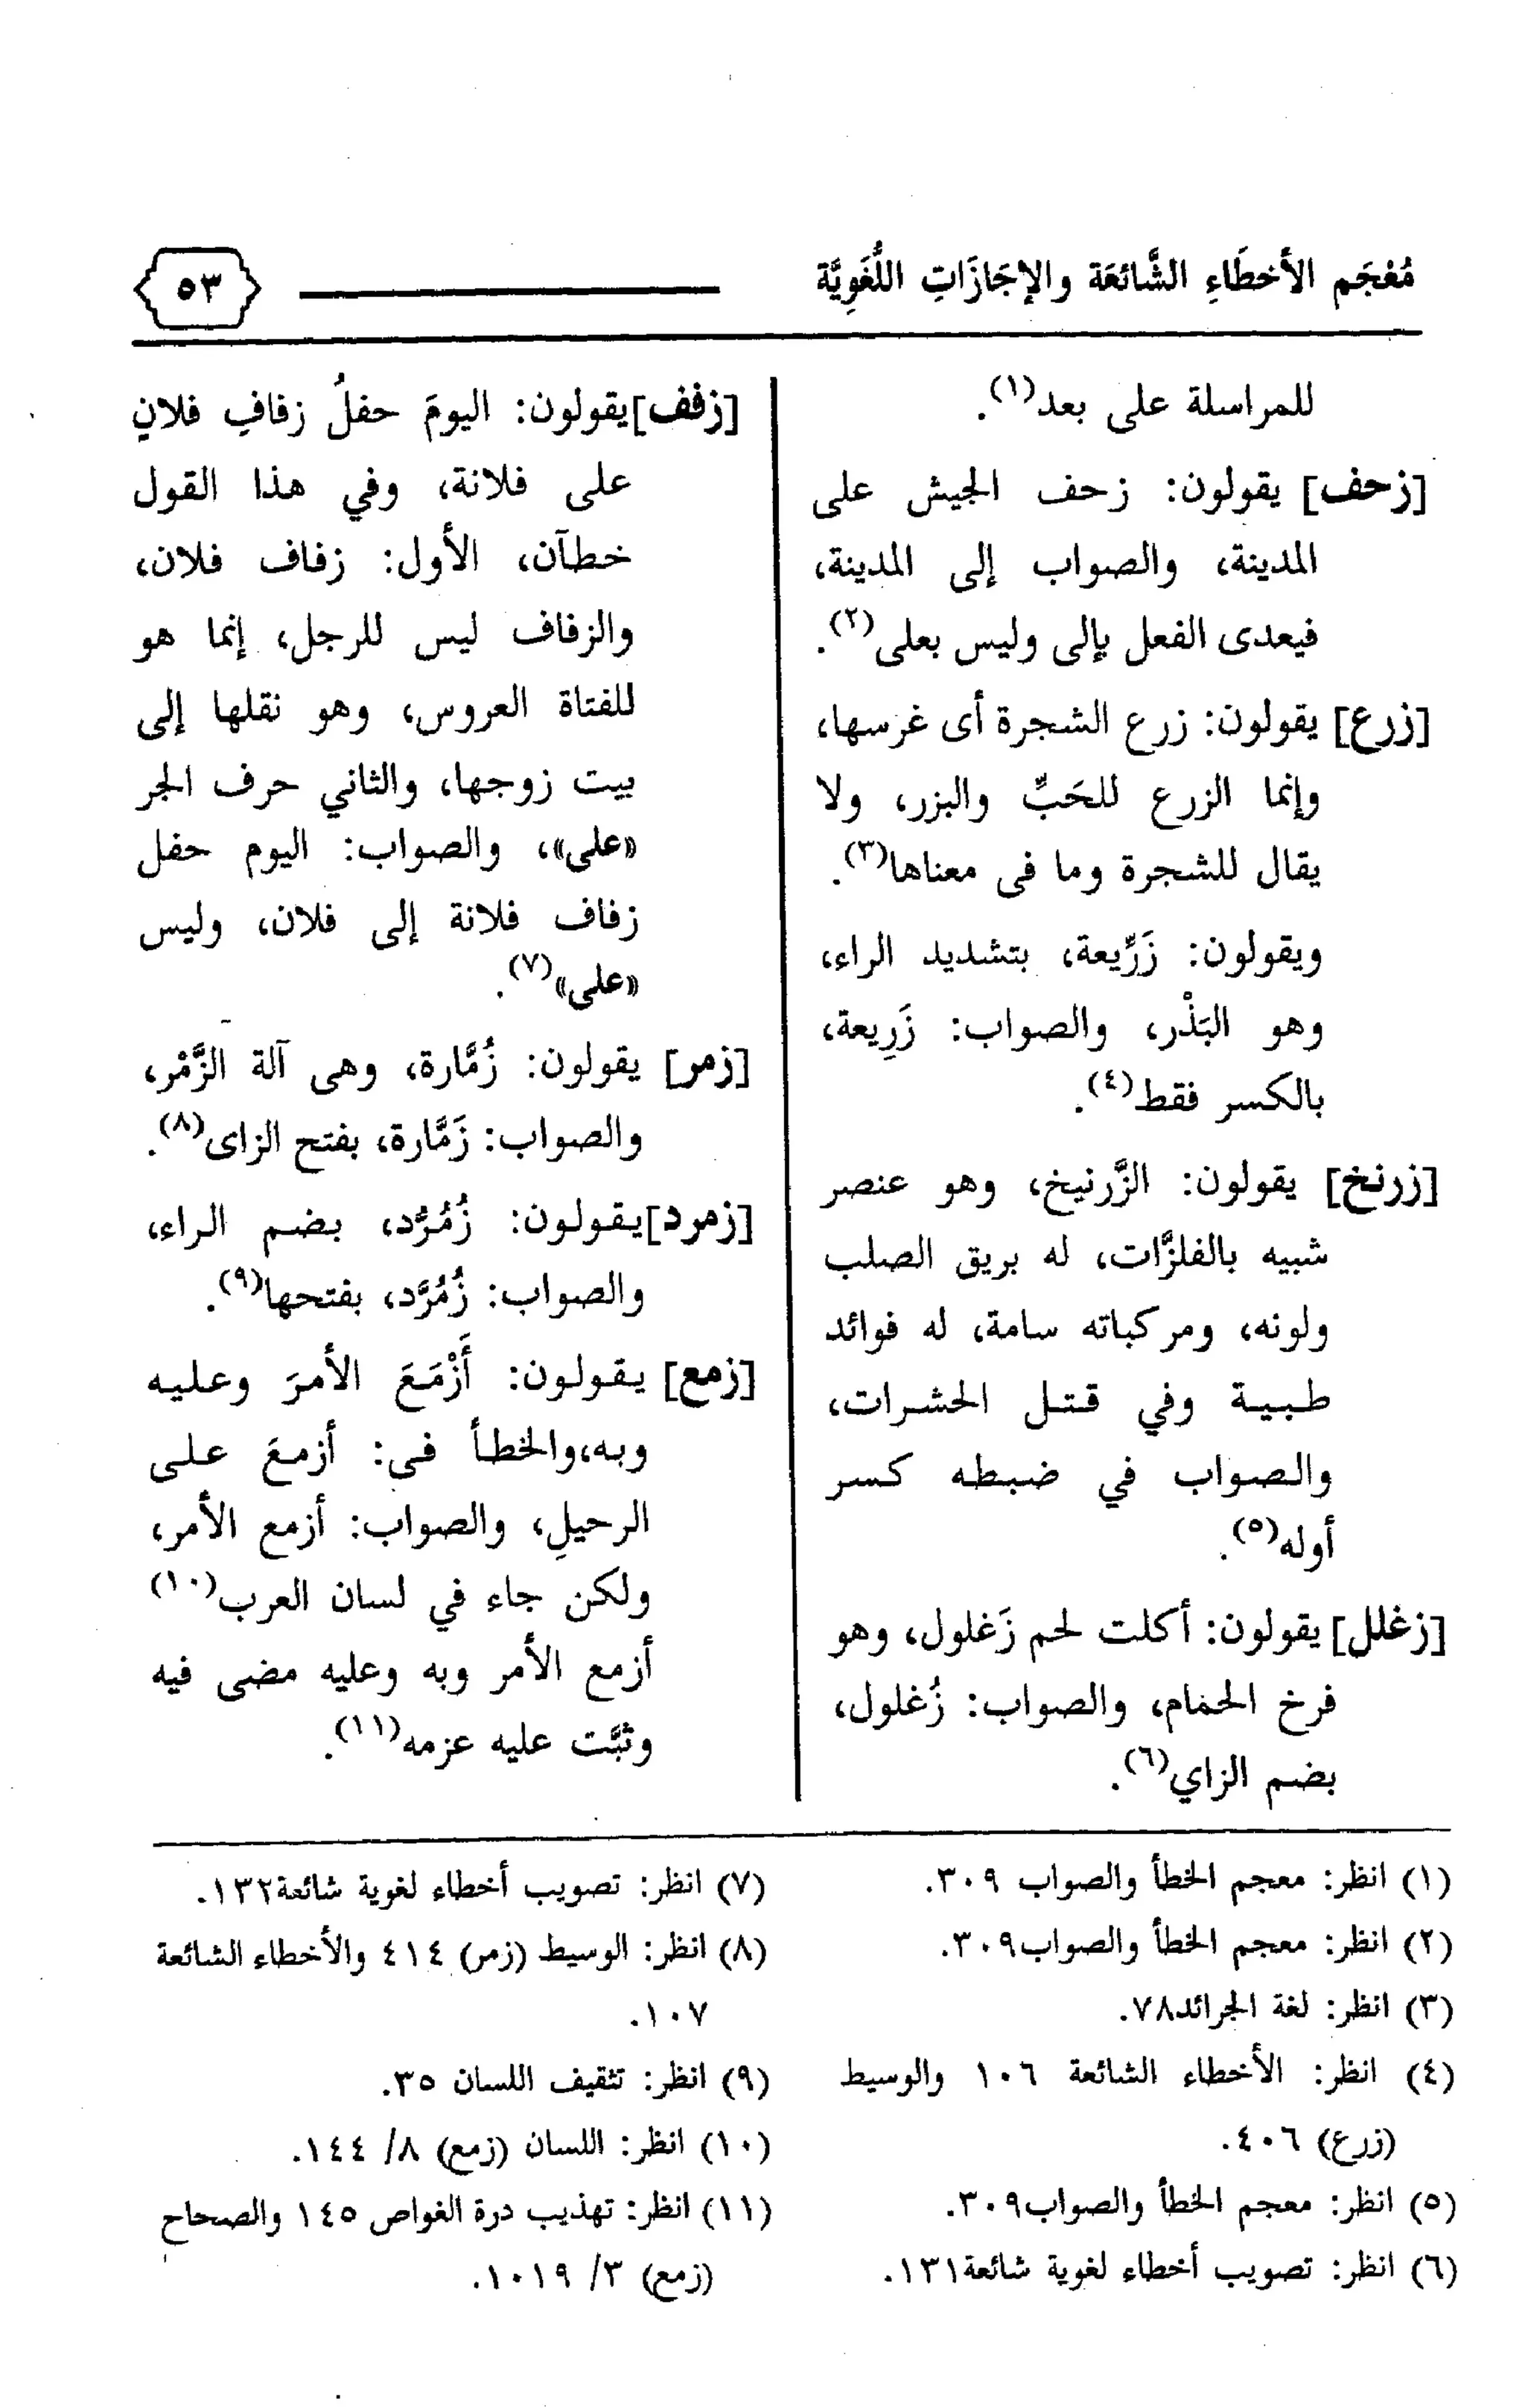 مُعْجَم الأخطَاءِ الشَّائعَة والإجَازَاتِ اللُّغَوِيَّة
٥٣
للمراسلة على بعد(١).
[زحف] يقولون: زحف الجيش على
المدينة، والصواب إلى المدينة،
فيعدى الفعل بإلى وليس بعلى(٢).
[زرع] يقولون: زرع الشجرة أى غرسها،
وإنما الزرع للحَبِّ والبزر، ولا
يقال للشجرة وما فى معناها(٣).
ويقولون: زَرِّيعة، بتشديد الراء،
وهو البَذْر، والصواب: زَرِيعة،
بالكسر فقط(٤).
[زرنخ] يقولون: الزَّرنيخ، وهو عنصر
شبيه بالفلزَّات، له بريق الصلب
ولونه، ومركباته سامة، له فوائد
طبية وفي قتل الحشرات،
والصواب في ضبطه كسر
أوله(٥).
[زغلل] يقولون: أكلت لحم زَغلول، وهو
فرخ الحمام، والصواب: زُغلول،
بضم الزاي(٦).
[زفف]يقولون: اليومَ حفلُ زفافِ فلانٍ
على فلانة، وفي هذا القول
خطآن، الأول: زفاف فلان،
والزفاف ليس للرجل، إنما هو
للفتاة العروس، وهو نقلها إلى
بيت زوجها، والثاني حرف الجر
«على»، والصواب: اليوم حفل
زفاف فلانة إلى فلان، وليس
«على»(٧).
[زمر] يقولون: زُمَّارة، وهى آلة الزَّمْر،
والصواب: زَمَّارة، بفتح الزاى(٨).
[زمرد]يقولون: زُمُرُّد، بضم الراء،
والصواب: زُمُرَّد، بفتحها(٩).
[زمع] يقولون: أَزْمَعَ الأمرَ وعليه
وبه،والخطأ فى: أزمعَ على
الرحيلِ، والصواب: أزمع الأمر،
ولكن جاء في لسان العرب(١٠)
أزمع الأمر وبه وعليه مضى فيه
وثبَّت عليه عزمه(١١).
(١) انظر: معجم الخطأ والصواب ٣٠٩.
(٢) انظر: معجم الخطأ والصواب٣٠٩.
(٣) انظر: لغة الجرائد٧٨.
(٤) انظر: الأخطاء الشائعة ١٠٦ والوسيط
(زرع) ٤٠٦.
(٥) انظر: معجم الخطأ والصواب٣٠٩.
(٦) انظر: تصويب أخطاء لغوية شائعة١٣١.
(٧) انظر: تصويب أخطاء لغوية شائعة١٣٢.
(٨) انظر: الوسيط (زمر) ٤١٤ والأخطاء الشائعة
١٠٧.
(٩) انظر: تثقيف اللسان ٣٥.
(١٠) انظر: اللسان (زمع) ٨/ ١٤٤.
(١١) انظر: تهذيب درة الغواص ١٤٥ والصحاح
(زمع) ٣/ ١٠١٩.